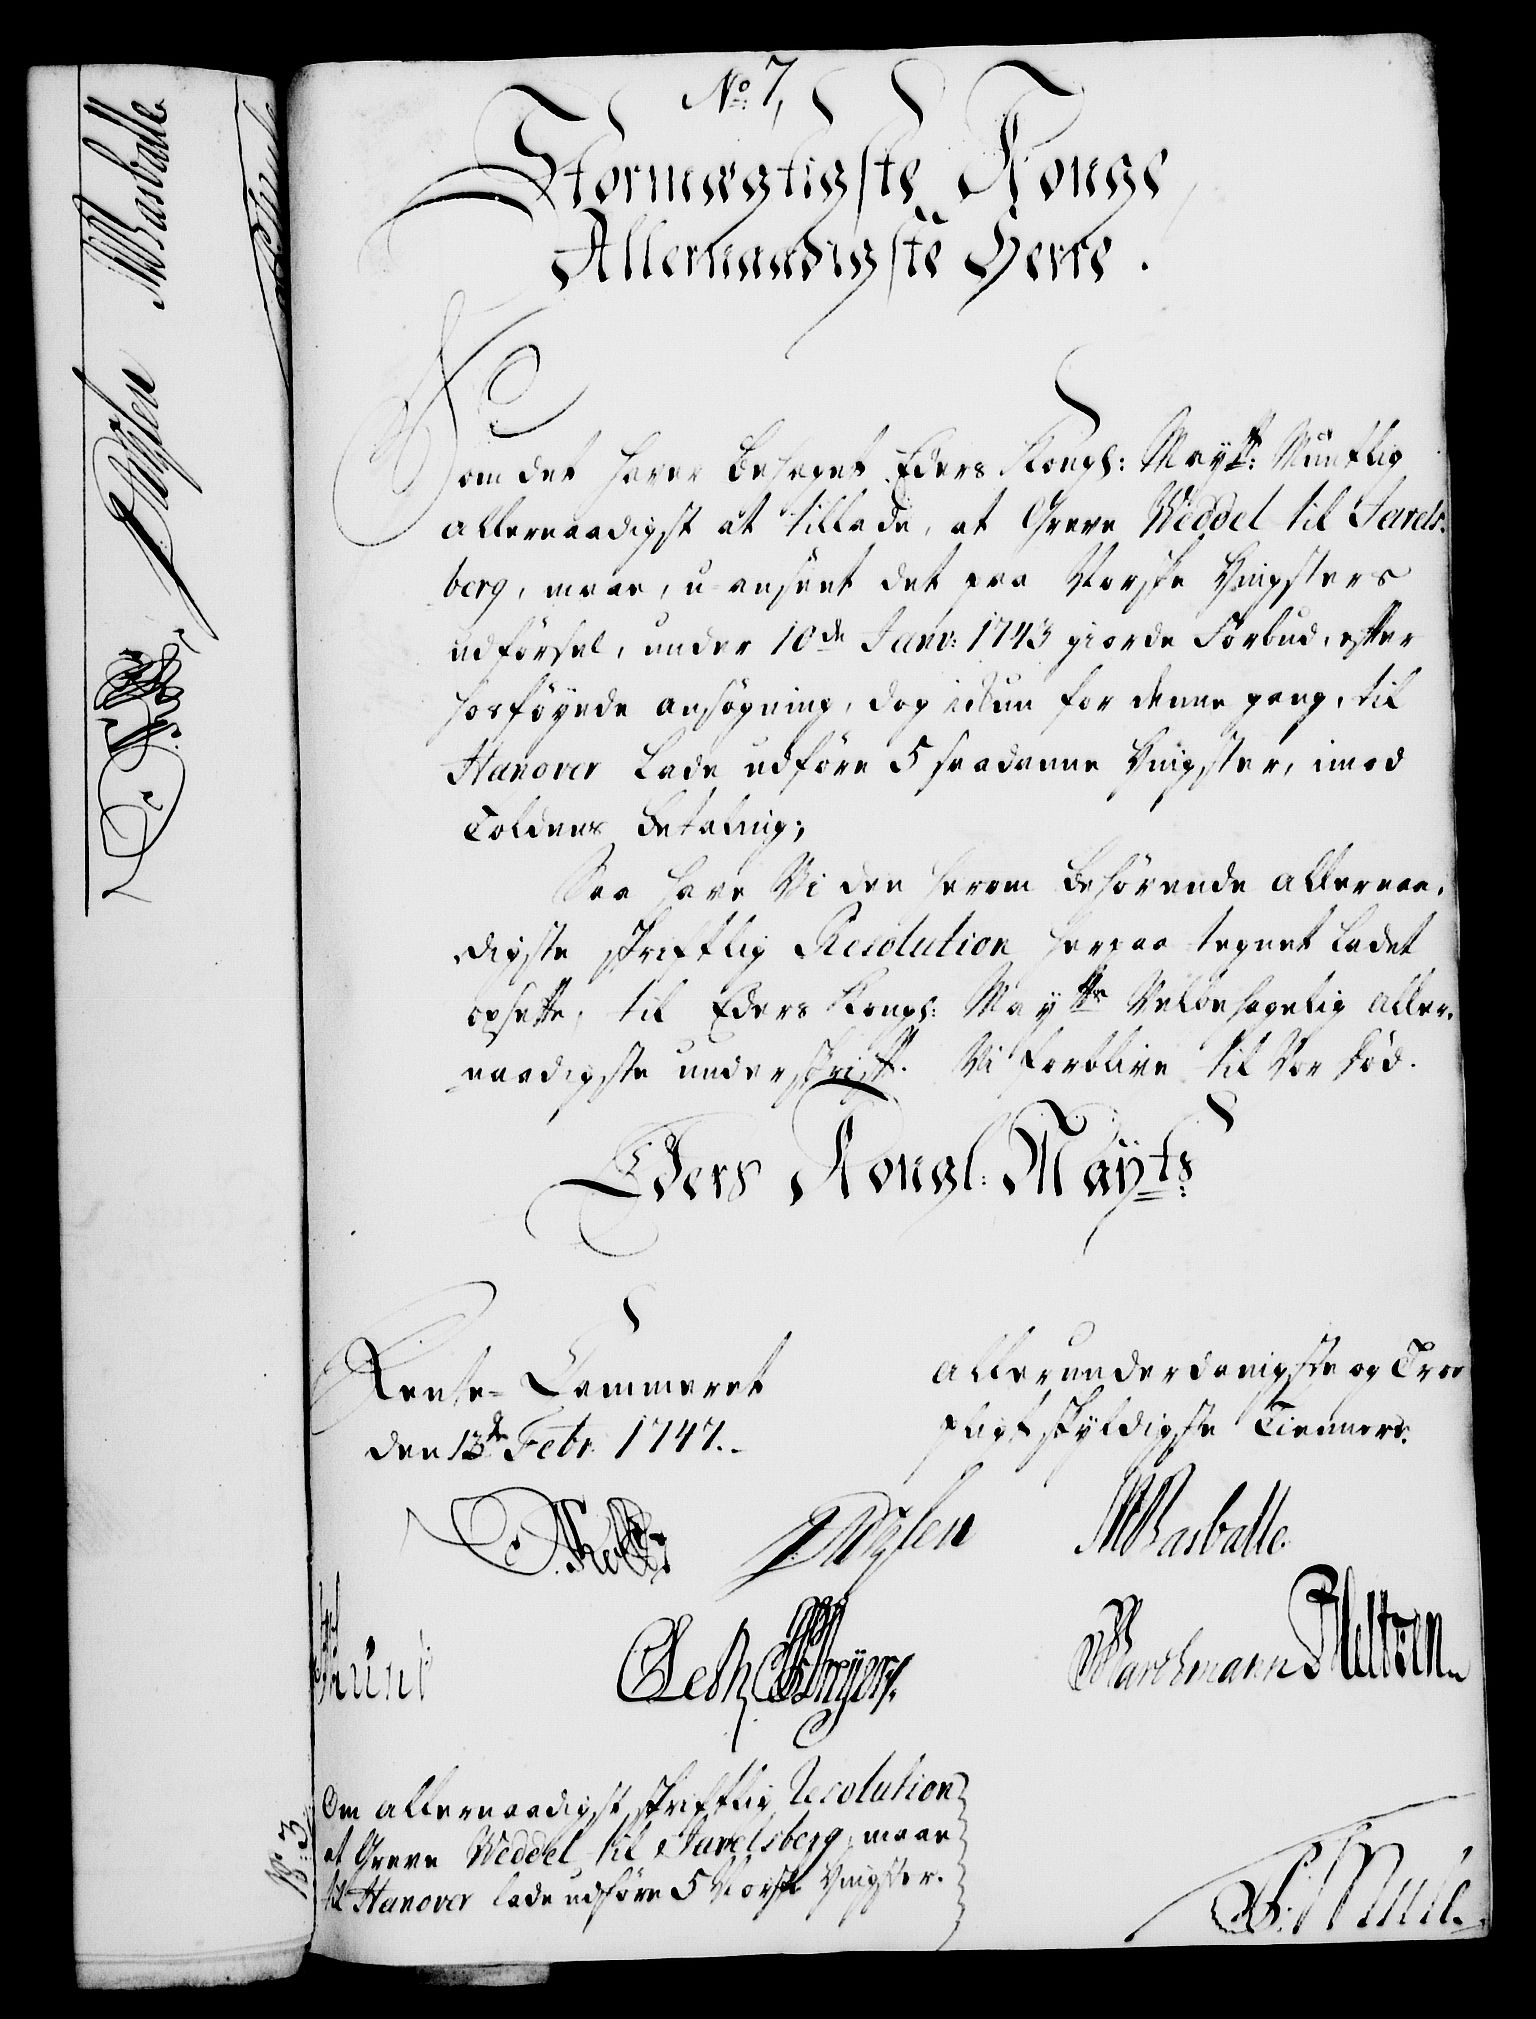 No 7,
Stormægtigste Konge
Allernaadigste Herre.
Som det haver behaget Eders Kongl: Mayts: Mündtlig
allernaadigst at tillade, at Greve Weddel til Jarels-
berg, maae, u-anseet det paa Norske Hingsters
udförsel, under 10de Janv: 1743 giorde Forbud, efter
hosföyede ansögning, dog ickun for denne gang, til
Hanover lade udföre 5 saadanne Hingster, imod
Toldens betaling;
Saa have Vi den herom behörende allernaa-
digste skriftlig Resolution herpaa tegnet ladet
opsette, til Eders Kongl: Mayts Velbehagelig aller-
naadigste underskrift. Vi forblive til Vor död.
Eders Kongl: Mayts:
Rente-Cammeret
den 13de Febr. 1747.
allerunderdanigste og Troe
pligtskyldigste Tiennere.
Basballe.
Seth Dreyer.
Marckmann Meltzen
Om allernaadigst skriftlig Resolution
at Greve Weddel til Jarelsberg, maae
til Hanover lade udföre 5 Norske Hingster.
No: 3
Basballe